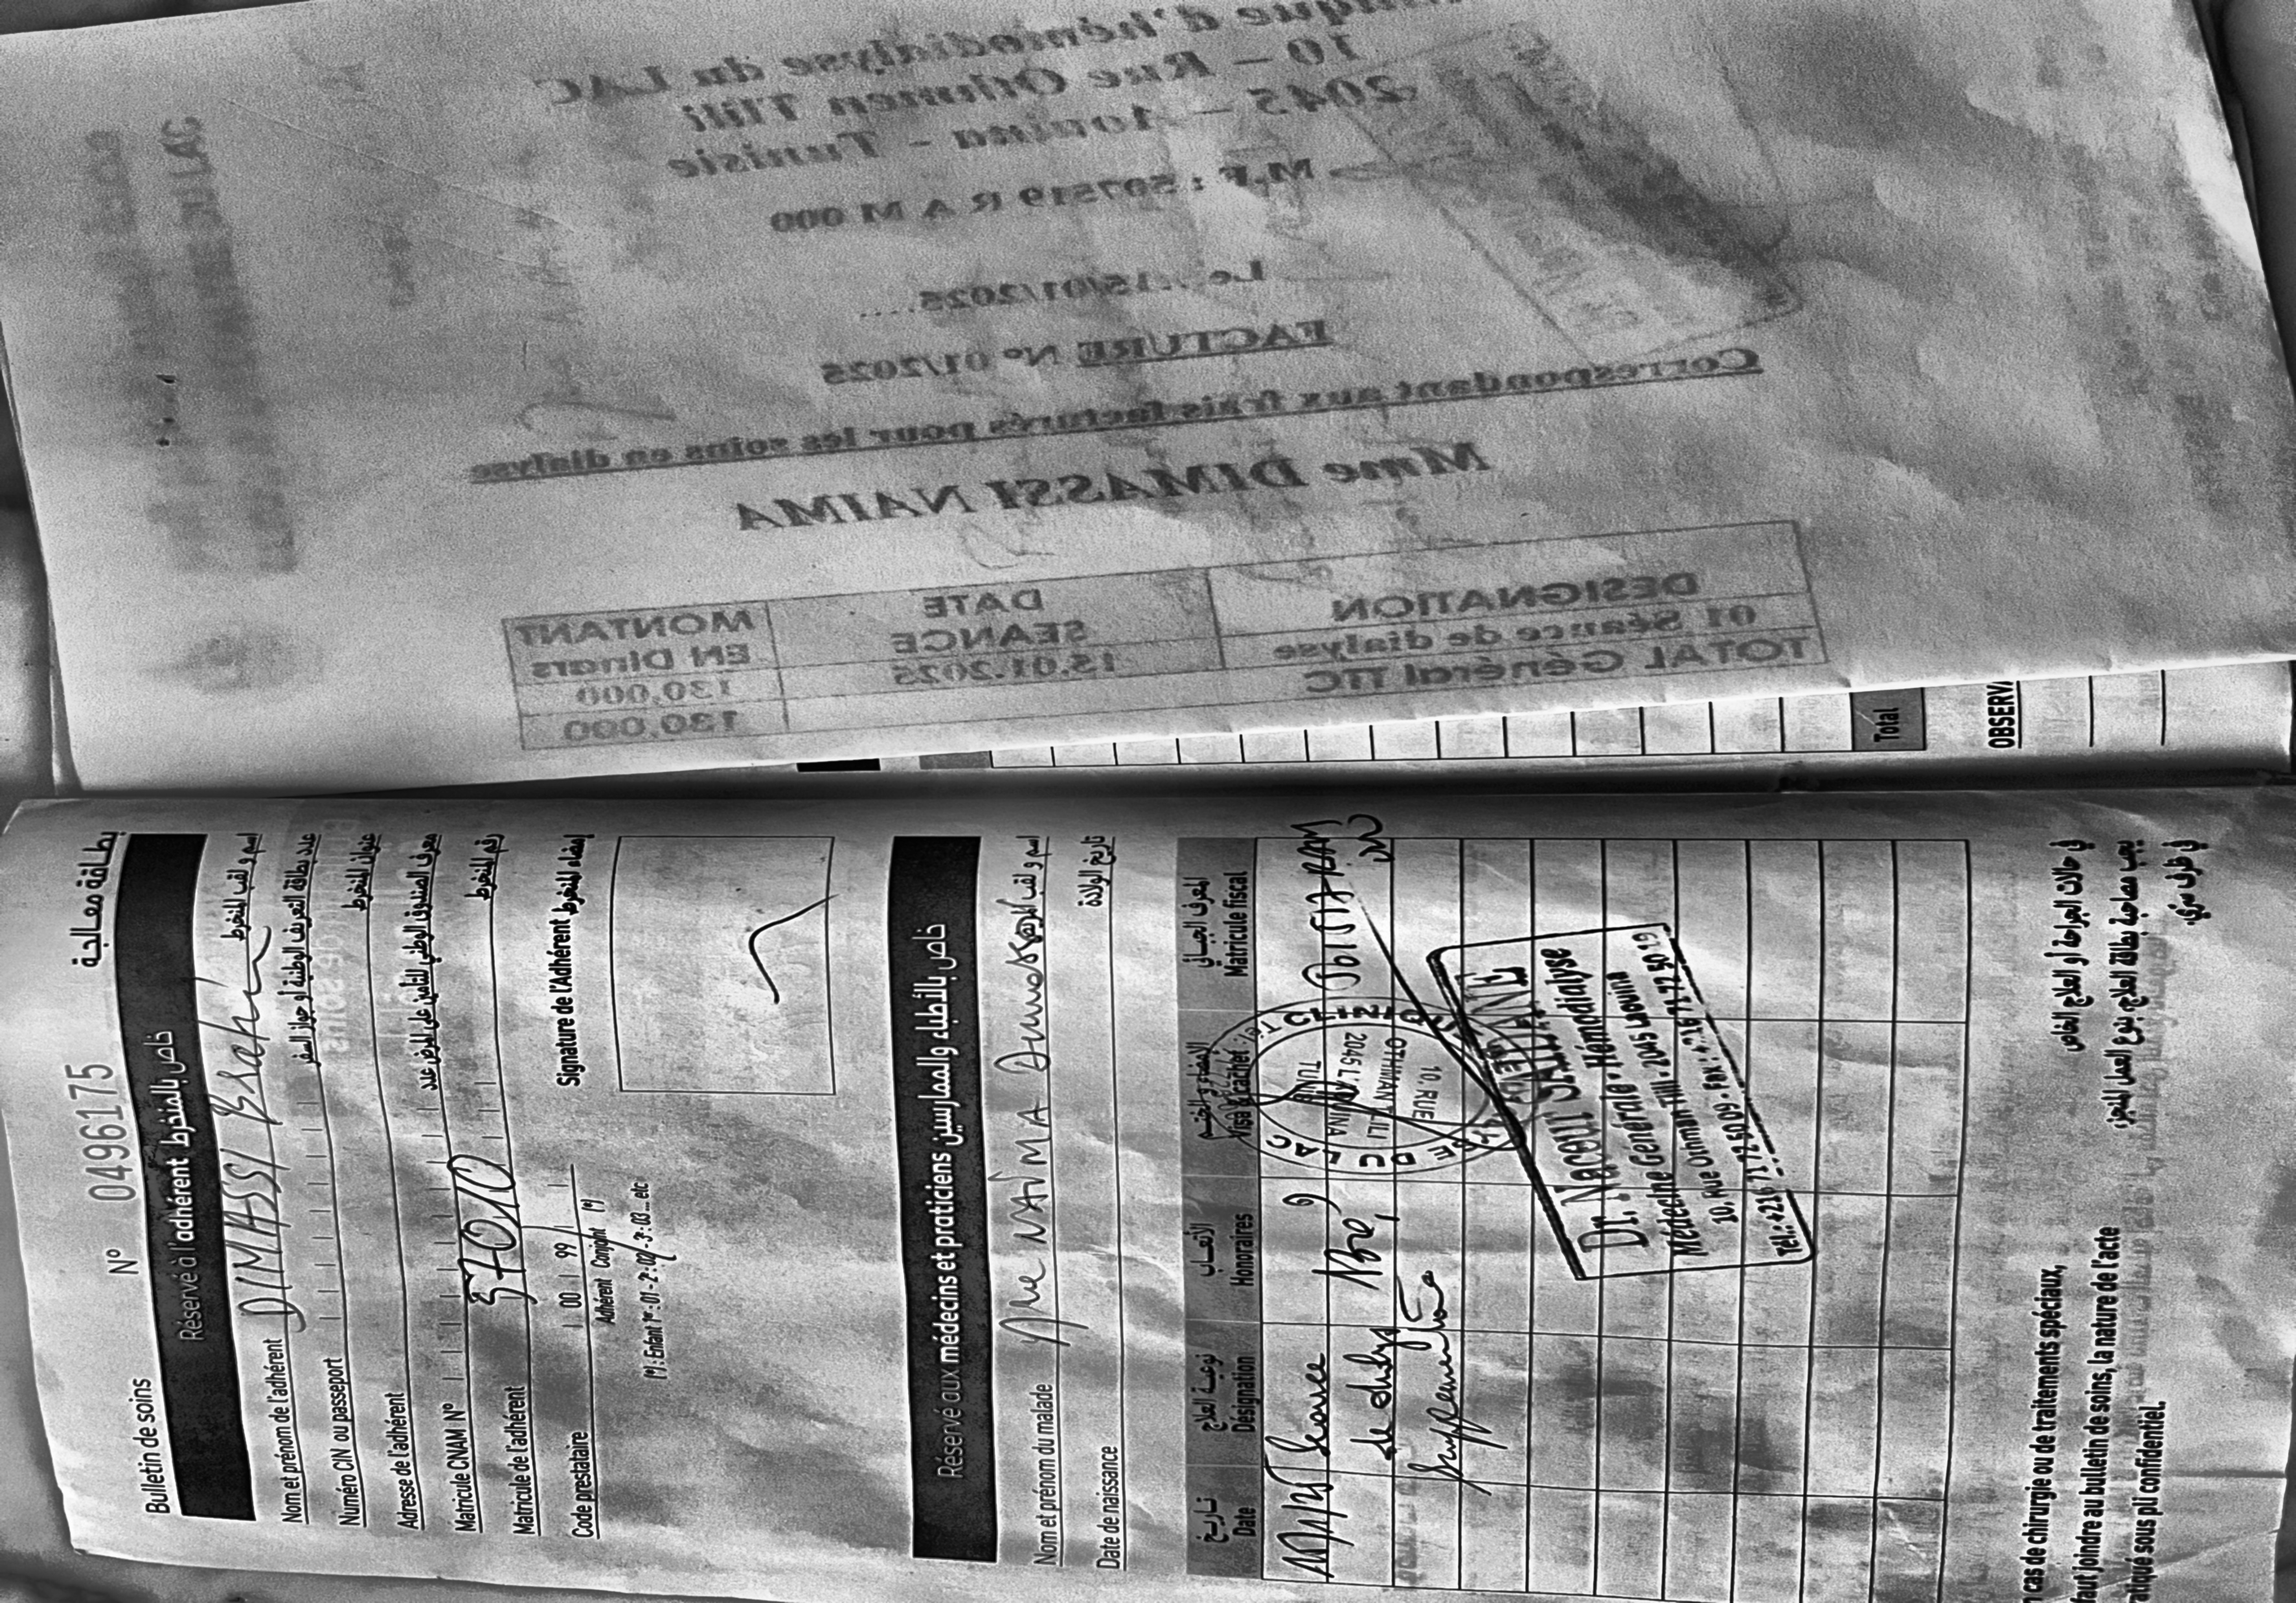 Clinique d'hémodialyse du LAC
10 – Rue Othmen Tlili
2045 – Aouina - Tunisie
M.F : 507519 R A M 000
Le ..15/01/2025.....
FACTURE N° 01/2025
Correspondant aux frais facturés pour les soins en dialyse
Mme DIMASSI NAIMA
DESIGNATION DATE SEANCE MONTANT EN Dinars
01 Séance de dialyse 15.01.2025 130.000
TOTAL Général TTC 130.000
Total
OBSERVA
Bulletin de soins N° 0496175 بطاقة معالجة
Réservé à l'adhérent خاص بالمنخرط
Nom et prénom de l'adhérent DIMASSI Brahim اسم و لقب المنخرط
Numéro CIN ou passeport عدد بطاقة التعريف الوطنية أو جواز السفر
Adresse de l'adhérent عنوان المنخرط
Matricule CNAM N° معرف الصندوق الوطني للتأمين على المرض عدد
Matricule de l'adhérent 37010 رقم المنخرط
Code prestataire 00 99
Adhérent Conjoint (*)
(*) : Enfant 1er : 01 - 2 : 02 - 3 : 03 ... etc
Signature de l'Adhérent إمضاء المنخرط
Réservé aux médecins et praticiens خاص بالأطباء والممارسين
Nom et prénom du malade Mme NAIMA Dimassi اسم و لقب المريض
Date de naissance تاريخ الولادة
تاريخ نوعية العلاج الأتعاب الإمضاء و الختم المعرف الجبائي
Date Désignation Honoraires Visa & cachet Matricule fiscal
Seance
de dialyse
supplementaire
10, RUE
OTHMAN TLILI
2045 LAOUINA
Dr. Naceur
Médecine Générale - Hémodialyse
10, Rue Othman Tlili - 2045 Laouina
Tél.: +216 71 72 50 09 - Fax : + 216 71 72 50 19
n cas de chirurgie ou de traitements spéciaux,
faut joindre au bulletin de soins, la nature de l'acte
ratiqué sous pli confidentiel.
في حالات الجراحة أو العلاج الخاص
يجب مصاحبة بطاقة العلاج بنوع العمل المنجز
في ظرف سري.